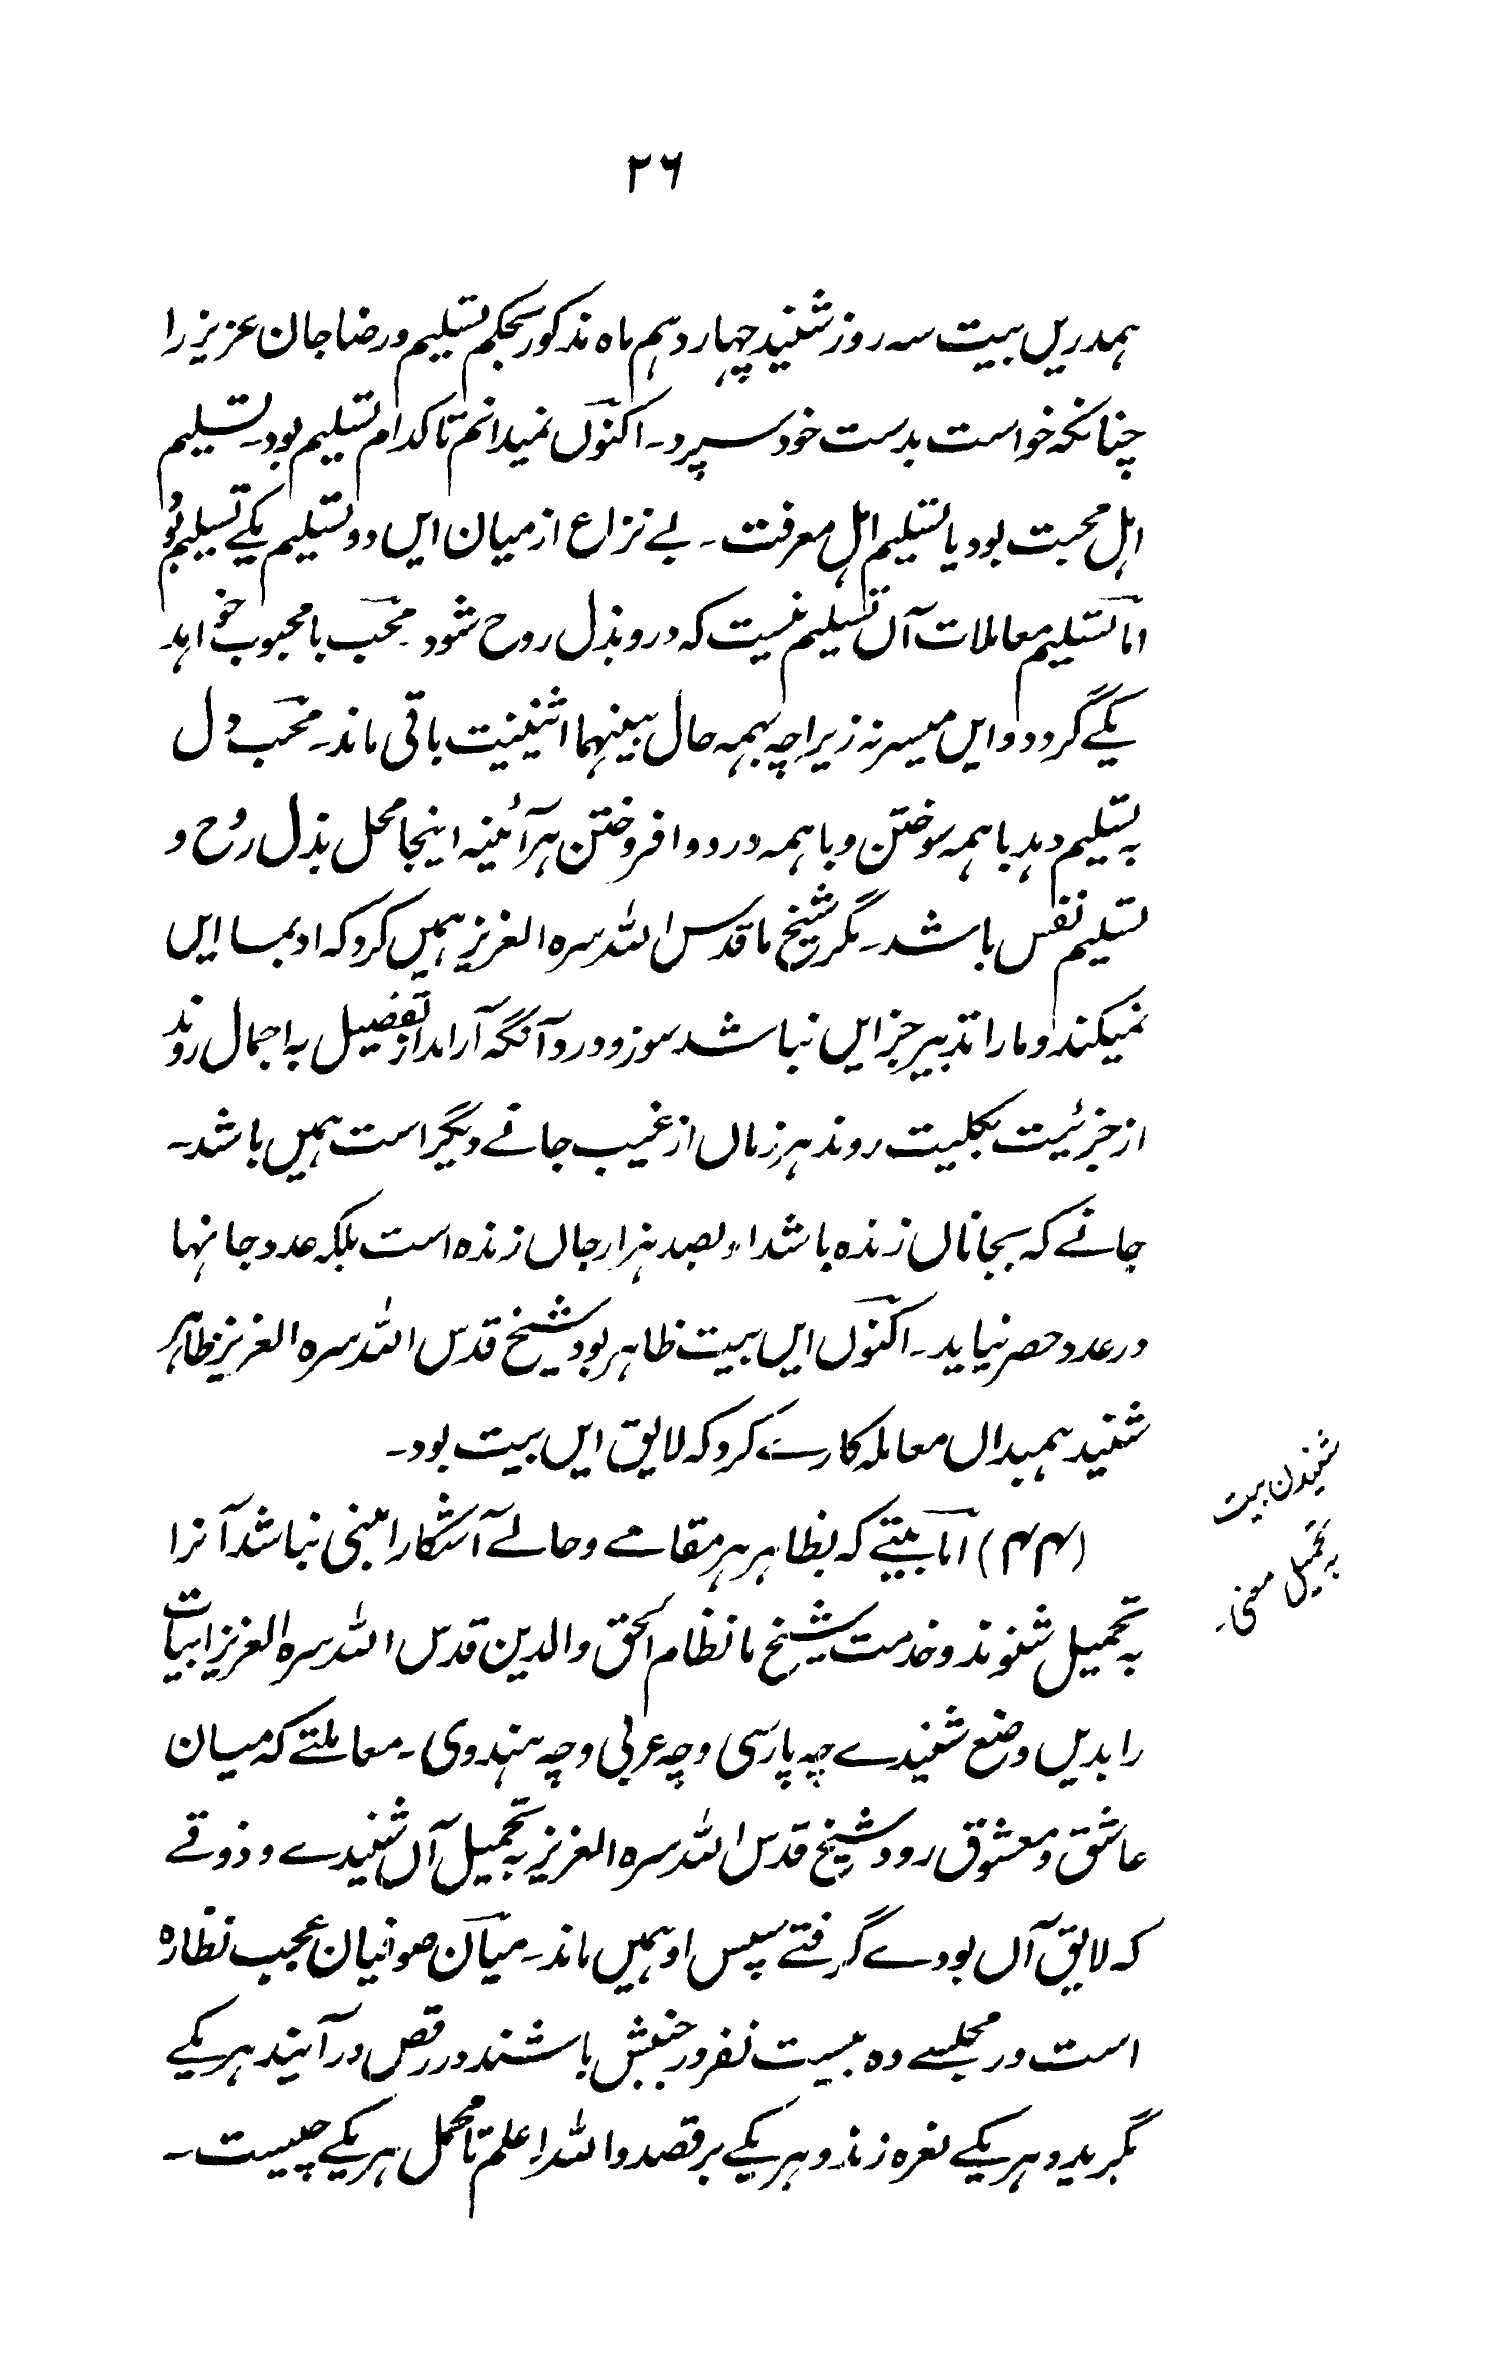 ۲۶
ہمدریں بیت سہ روز شنید چہاردہم ماہ مذکور بحکم تسلیم و رضا جان عزیز را
چنانکہ خواست بدست خود سپرد۔ اکنوں نمیدانم تا کدام تسلیم بود۔ تسلیم
اہل محبت بود یا تسلیم اہل معرفت۔ بے نزاع از میان ایں دو تسلیم یکے تسلیم بُود
اما تسلیم معاملات آں تسلیم نیست کہ درو بذل روح شود۔ محب با محبوب خواہد
یکے گردد و ایں میسر نہ زیراچہ بہمہ حال بینہما اثنینیت باقی ماند۔ محب دل
بہ تسلیم دہد با ہمہ سوختن و با ہمہ درد و افروختن ہر آئینہ اینجا محل بذل رُوح و
تسلیم نفس باشد۔ مگر شیخ ما قدس اللہ سرہ العزیز ہمیں کرد کہ او بما ایں
نمیکند و ما را تدبیر جز ایں نباشد سوز و درد آنگہ آرامد از تفصیل بہ اجمال روند
از جزئیت بکلیت روند ہر زماں از غیب جانے دیگر است ہمیں باشد۔
جانے کہ بجاناں زندہ باشد او بصد ہزار جاں زندہ است بلکہ عدد جانہا
در عدد حصر نیاید۔ اکنوں ایں بیت ظاہر بود شیخ قدس اللہ سرہ العزیز ظاہر
شنید ہمبداں معاملہ کارے کرد کہ لایق ایں بیت بود۔
شنیدن بیت
بہ تحمیل معنی۔
(۴۴) اما بیتے کہ بظاہر ہر مقامے و حالے آشکارا مبنی نباشد آنرا
بہ تحمیل شنوند و خدمت شیخ ما نظام الحق والدین قدس اللہ سرہ العزیز ابیات
را بدیں وضع شنیدے چہ پارسی و چہ عربی و چہ ہندوی۔ معاملتے کہ میان
عاشق و معشوق رود شیخ قدس اللہ سرہ العزیز بہ تحمیل آں شنیدے و ذوقے
کہ لایق آں بودے گرفتے سپس او ہمیں ماند۔ میان صوفیان عجیب نظارہ
است در مجلسے دہ بیست نفر در جنبش باشند در رقص در آیند ہر یکے
بگرید و ہر یکے نعرہ زند و ہر یکے برقصد واللہ اعلم تا محمل ہر یکے چیست۔